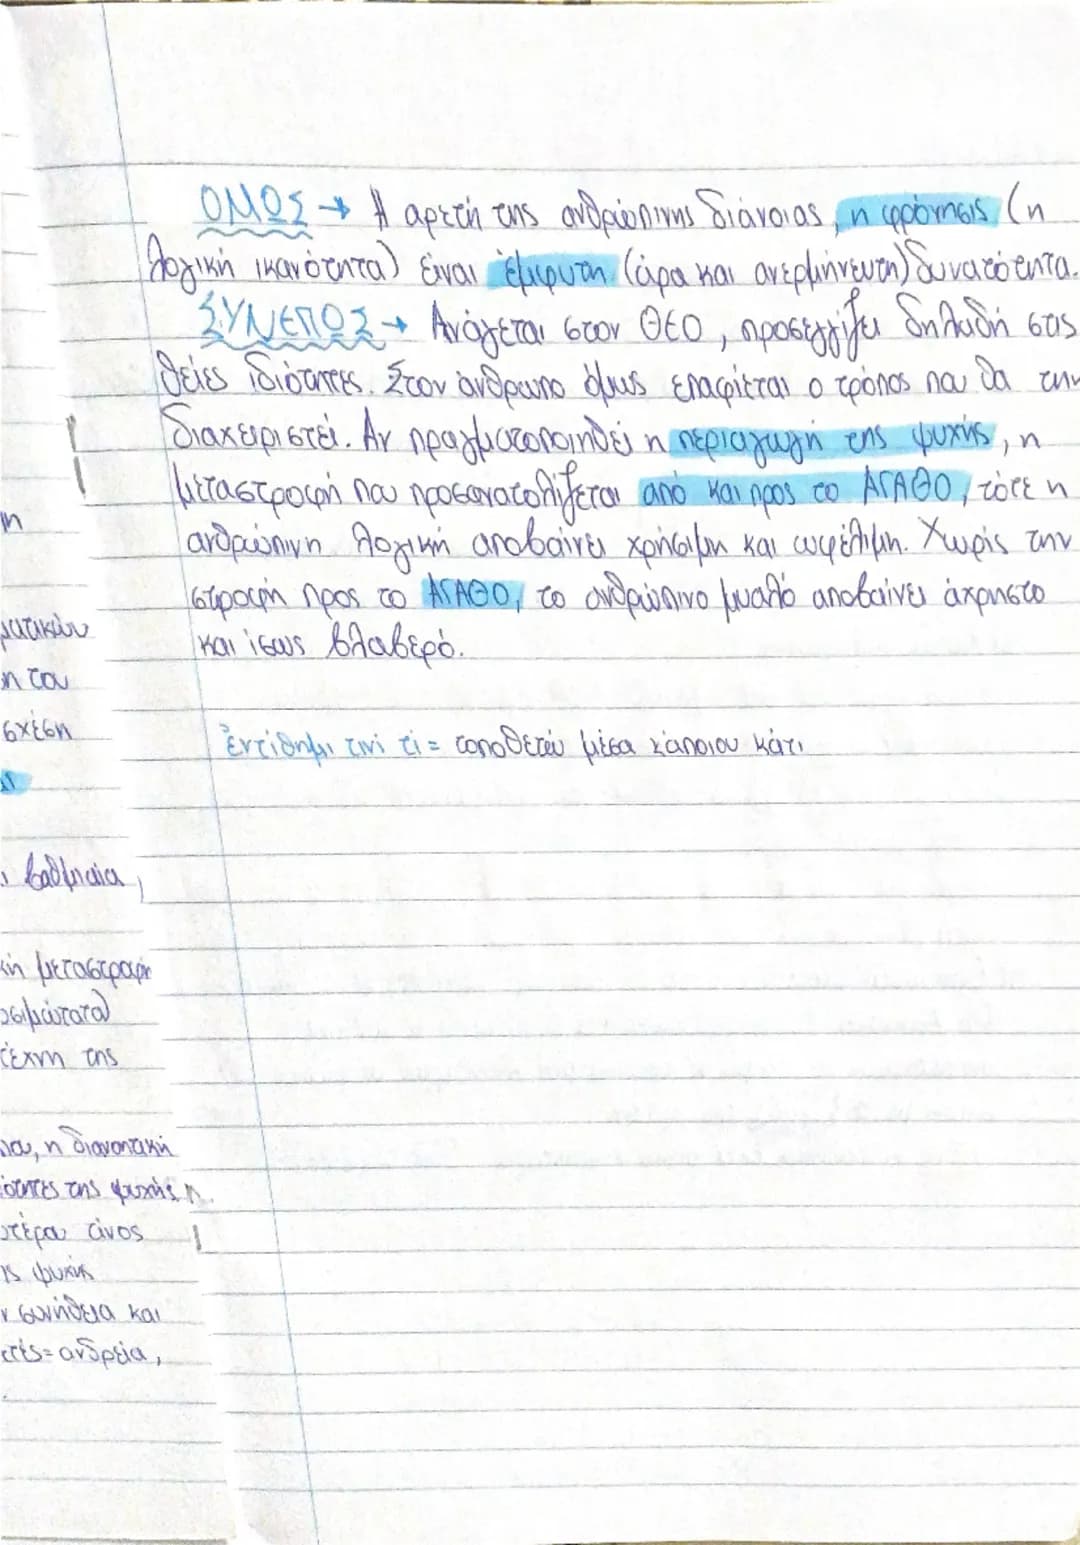 ΟΜΩΣ → Η αρετή της ανθρώπινης διάνοιας, η φρόνησις (η
λογική ικανότητα) είναι έμφυτη (άρα και ανερμήνευτη) δυνατότητα.
ΣΥΝΕΠΩΣ → Ανάγεται στον ΘΕΟ, προσεγγίζει δηλαδή στις
θείες ιδιότητες. Στον άνθρωπο όμως επαφίεται ο τρόπος που θα την
διαχειριστεί. Αν πραγματοποιηθεί η περιαγωγή της ψυχής, η
μεταστροφή που προσανατολίζεται από και προς το ΑΓΑΘΟ, τότε η
ανθρώπινη λογική αποβαίνει χρήσιμη και ωφέλιμη. Χωρίς την
στροφή προς το ΑΓΑΘΟ, το ανθρώπινο μυαλό αποβαίνει άχρηστο
και ίσως βλαβερό.
ἐντίθημι τινί τι = τοποθετώ μέσα κάποιου κάτι
η
ματικών
η του
σχέση
ι βαθμιαία,
κή μεταστροφή
τέχνη της
που, η διανοητική
ιότητες της ψυχής
ότερου τινος
ης ψυχής
ν συνήθεια και
ετές = ανδρεία,